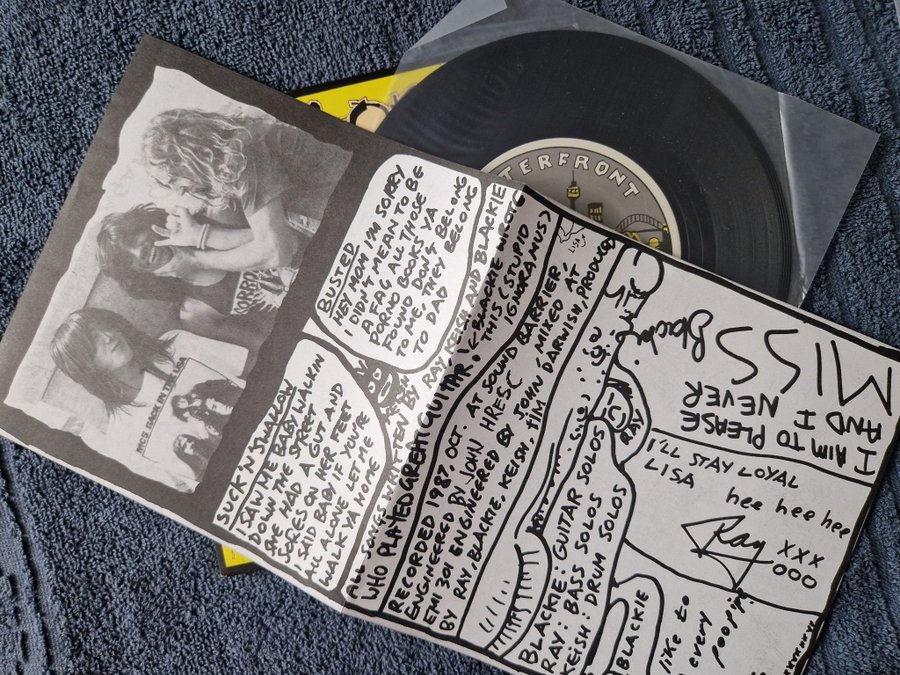 TERFRONT
MC5 BACK IN THE USA
BUSTED
HEY MOM I'M SORRY
DIDN'T MEAN TO BE
A FAG ALL THOSE
PORNO BOOKS YA
FOUND DON'T BELONG
TO ME, THEY BELONG
TO DAD
SUCK'N'SWALLOW
SAW ME BABY WALKIN
DOWN THE STREET
SHE HAD A GUT AND
SORES ON HER FEET
I SAID BABY IF YOU'RE
ALL ALONE LET ME
WALK YA HOME
ALL SONGS WRITTEN BY RAY, KEISH AND BLACKIE
WHO PLAYED GUITAR. (BLACKIE WROTE
THIS (STUPID
IGNORAMUS)
RECORDED 1987. OCT. AT SOUND BARRIER
ENGINEERED BY JOHN HRESC, MIXED AT
EMI 301 ENGINEERED BY JOHN DARWISH, PRODUCED
BY RAY, BLACKIE, KEISH, TIM
LISA
BLACKIE: GUITAR SOLOS
RAY: BASS SOLOS
KEISH: DRUM SOLOS
RAY
BLACKIE
I AIM TO PLEASE
AND I NEVER
MISS
Blackie
I'LL STAY LOYAL
LISA
hee hee hee
Ray
XXX
OOO
like to
every